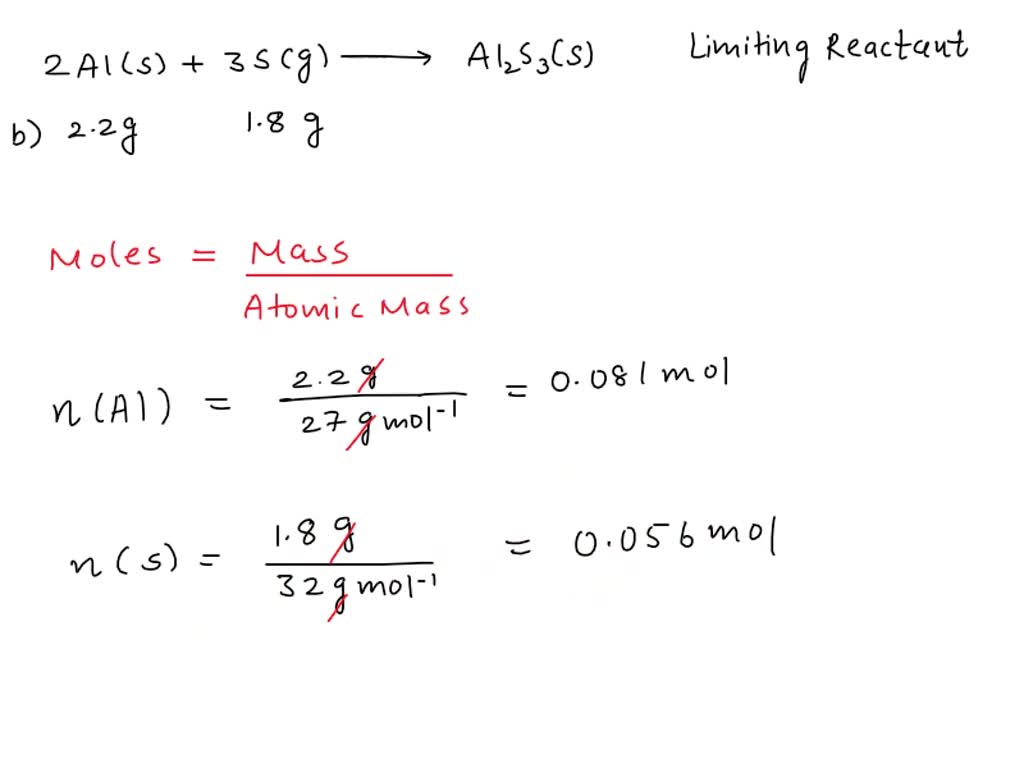 2Al(s) + 3S(g) ⟶ Al₂S₃(s) Limiting Reactant
b) 2.2g 1.8 g
Moles = Mass
Atomic Mass
n(Al) = 2.2 g / 27 g mol⁻¹ = 0.081 mol
n(s) = 1.8 g / 32 g mol⁻¹ = 0.056 mol